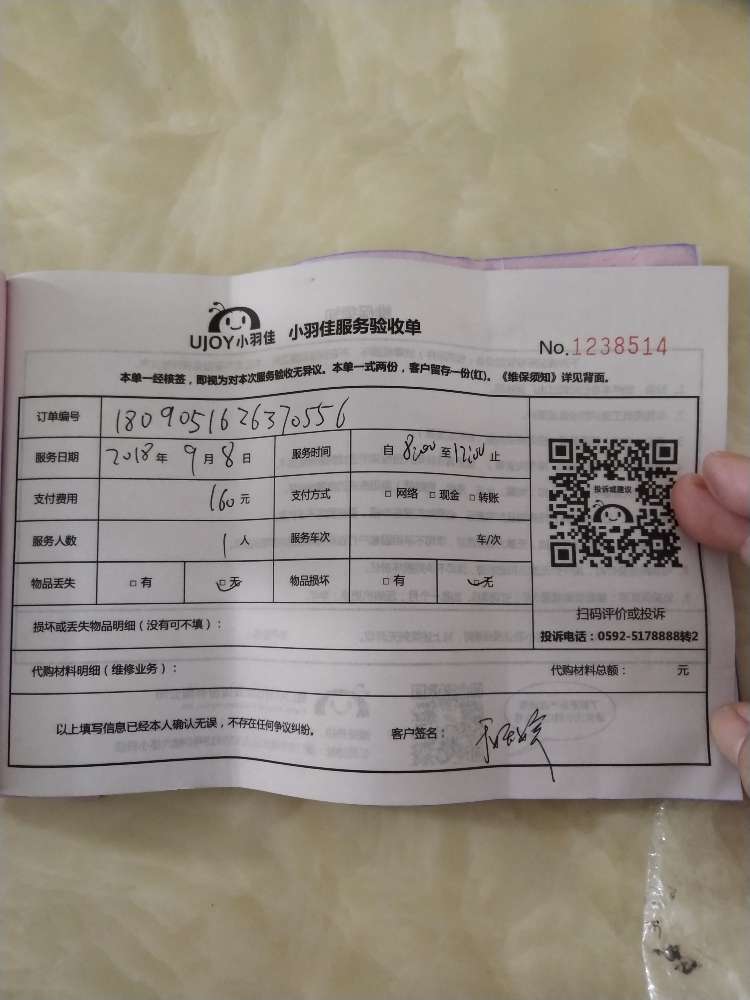 UJOY小羽佳 小羽佳服务验收单
No.1238514
本单一经核签，即视为对本次服务验收无异议。本单一式两份，客户留存一份(红)。《维保须知》详见背面。
订单编号 180905162637055​6
服务日期 2018年9月8日 服务时间 自8:00至12:00止
投诉或建议
支付费用 160元 支付方式 □网络 □现金 □转账
服务人数 1人 服务车次 车/次
物品丢失 □有 □无 物品损坏 □有 □无
扫码评价或投诉
损坏或丢失物品明细（没有可不填）：
投诉电话：0592-5178888转2
代购材料明细（维修业务）： 代购材料总额： 元
以上填写信息已经本人确认无误，不存在任何争议纠纷。 客户签名：